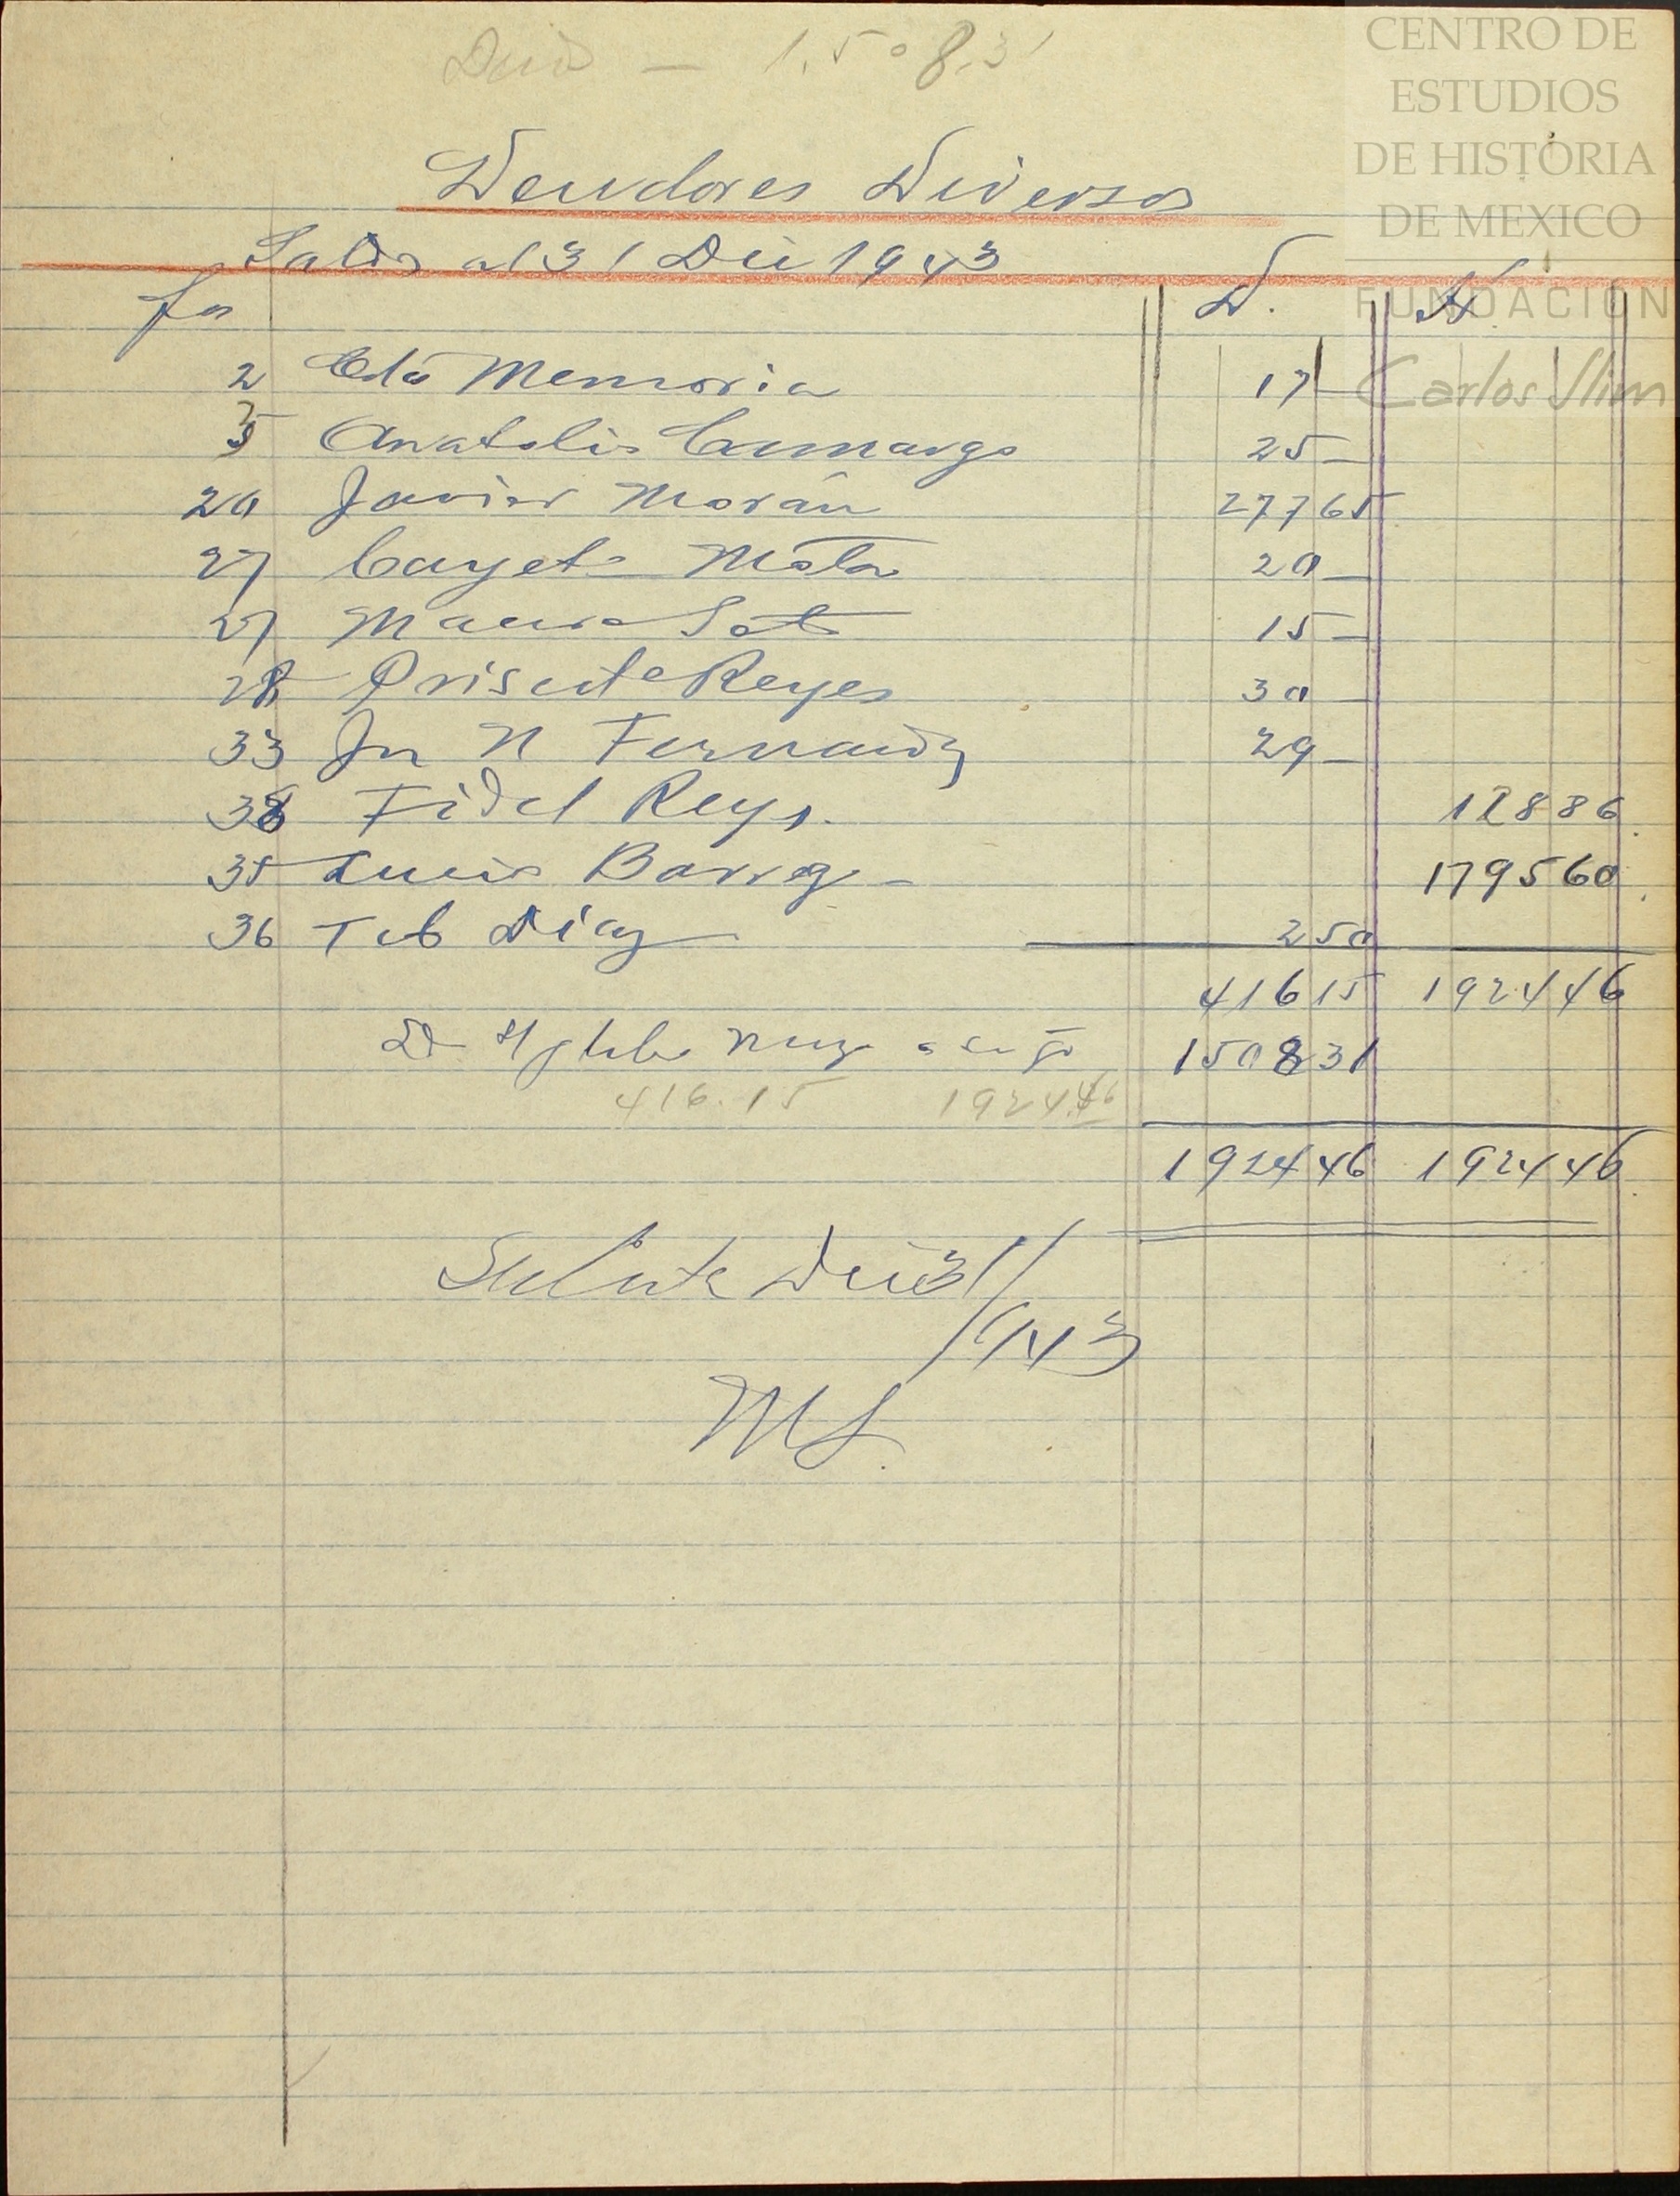 1.508.31
CENTRO DE
ESTUDIOS
DE HISTORIA
DE MEXICO
FUNDACION
Carlos Slim
Deudores Diversos
Saldos al 31 Dic 1943
fos D. H
2 Cta Memoria 17 —
5 Anatolio Camargo 25 —
20 Javier Morán 277 65
27 Cayet° Mota 20 —
27 Mauro Soto 15 —
28 Prisco Reyes 30 —
33 Jn N Fernandz 29 —
38 Fidel Reys. 128 86
35 Luis Barrg 1795 60
36 Teb Diaz 2 50
416 15 1924 46
1508 31
416.15 1924.46
1924 46 1924 46
Dic 31/
1943
ML